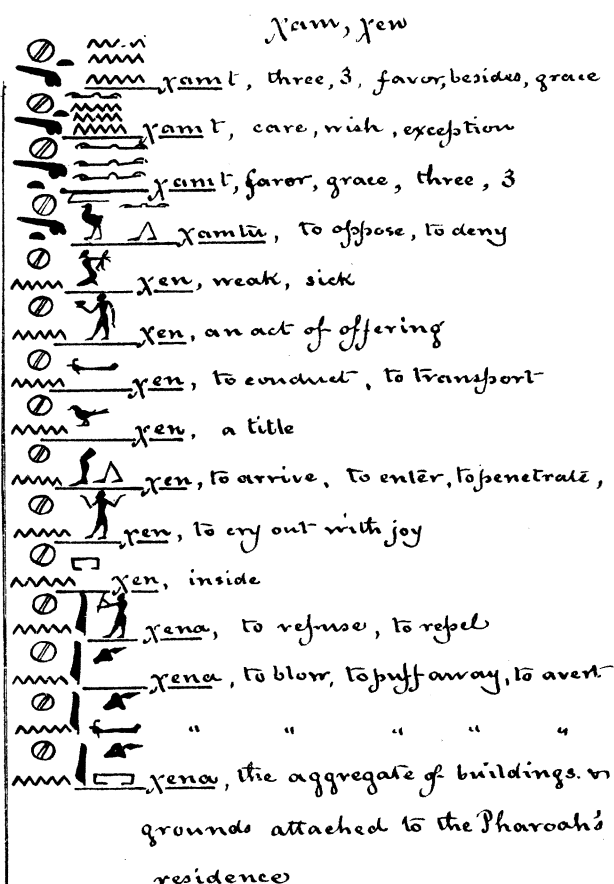 χam, χen
χamt, three, 3, favor, besides, grace
χamt, care, wish, exception
χamt, favor, grace, three, 3
χamtu, to oppose, to deny
χen, weak, sick
χen, an act of offering
χen, to conduct, to transport
χen, a title
χen, to arrive, to enter, to penetrate,
χen, to cry out with joy
χen, inside
χena, to refuse, to repel
χena, to blow, to puff away, to avert
" " " " "
χena, the aggregate of buildings. or
grounds attached to the Pharoah's
residence